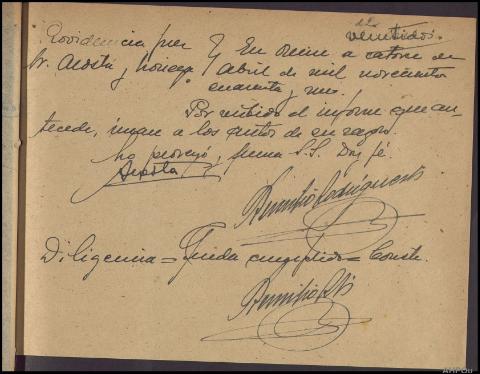 de
veintidos.
Providencia juez } En Orense a catorce de
Sr. Acosta y Noriega } Abril de mil novecientos
cuarenta y uno.
Por recibido el informe que an-
tecede, únase a los autos de su razón.
Lo proveyó, firma S.S. Doy fé.
Acosta
Diligencia = Queda cumplido = Conste.
AHPOu